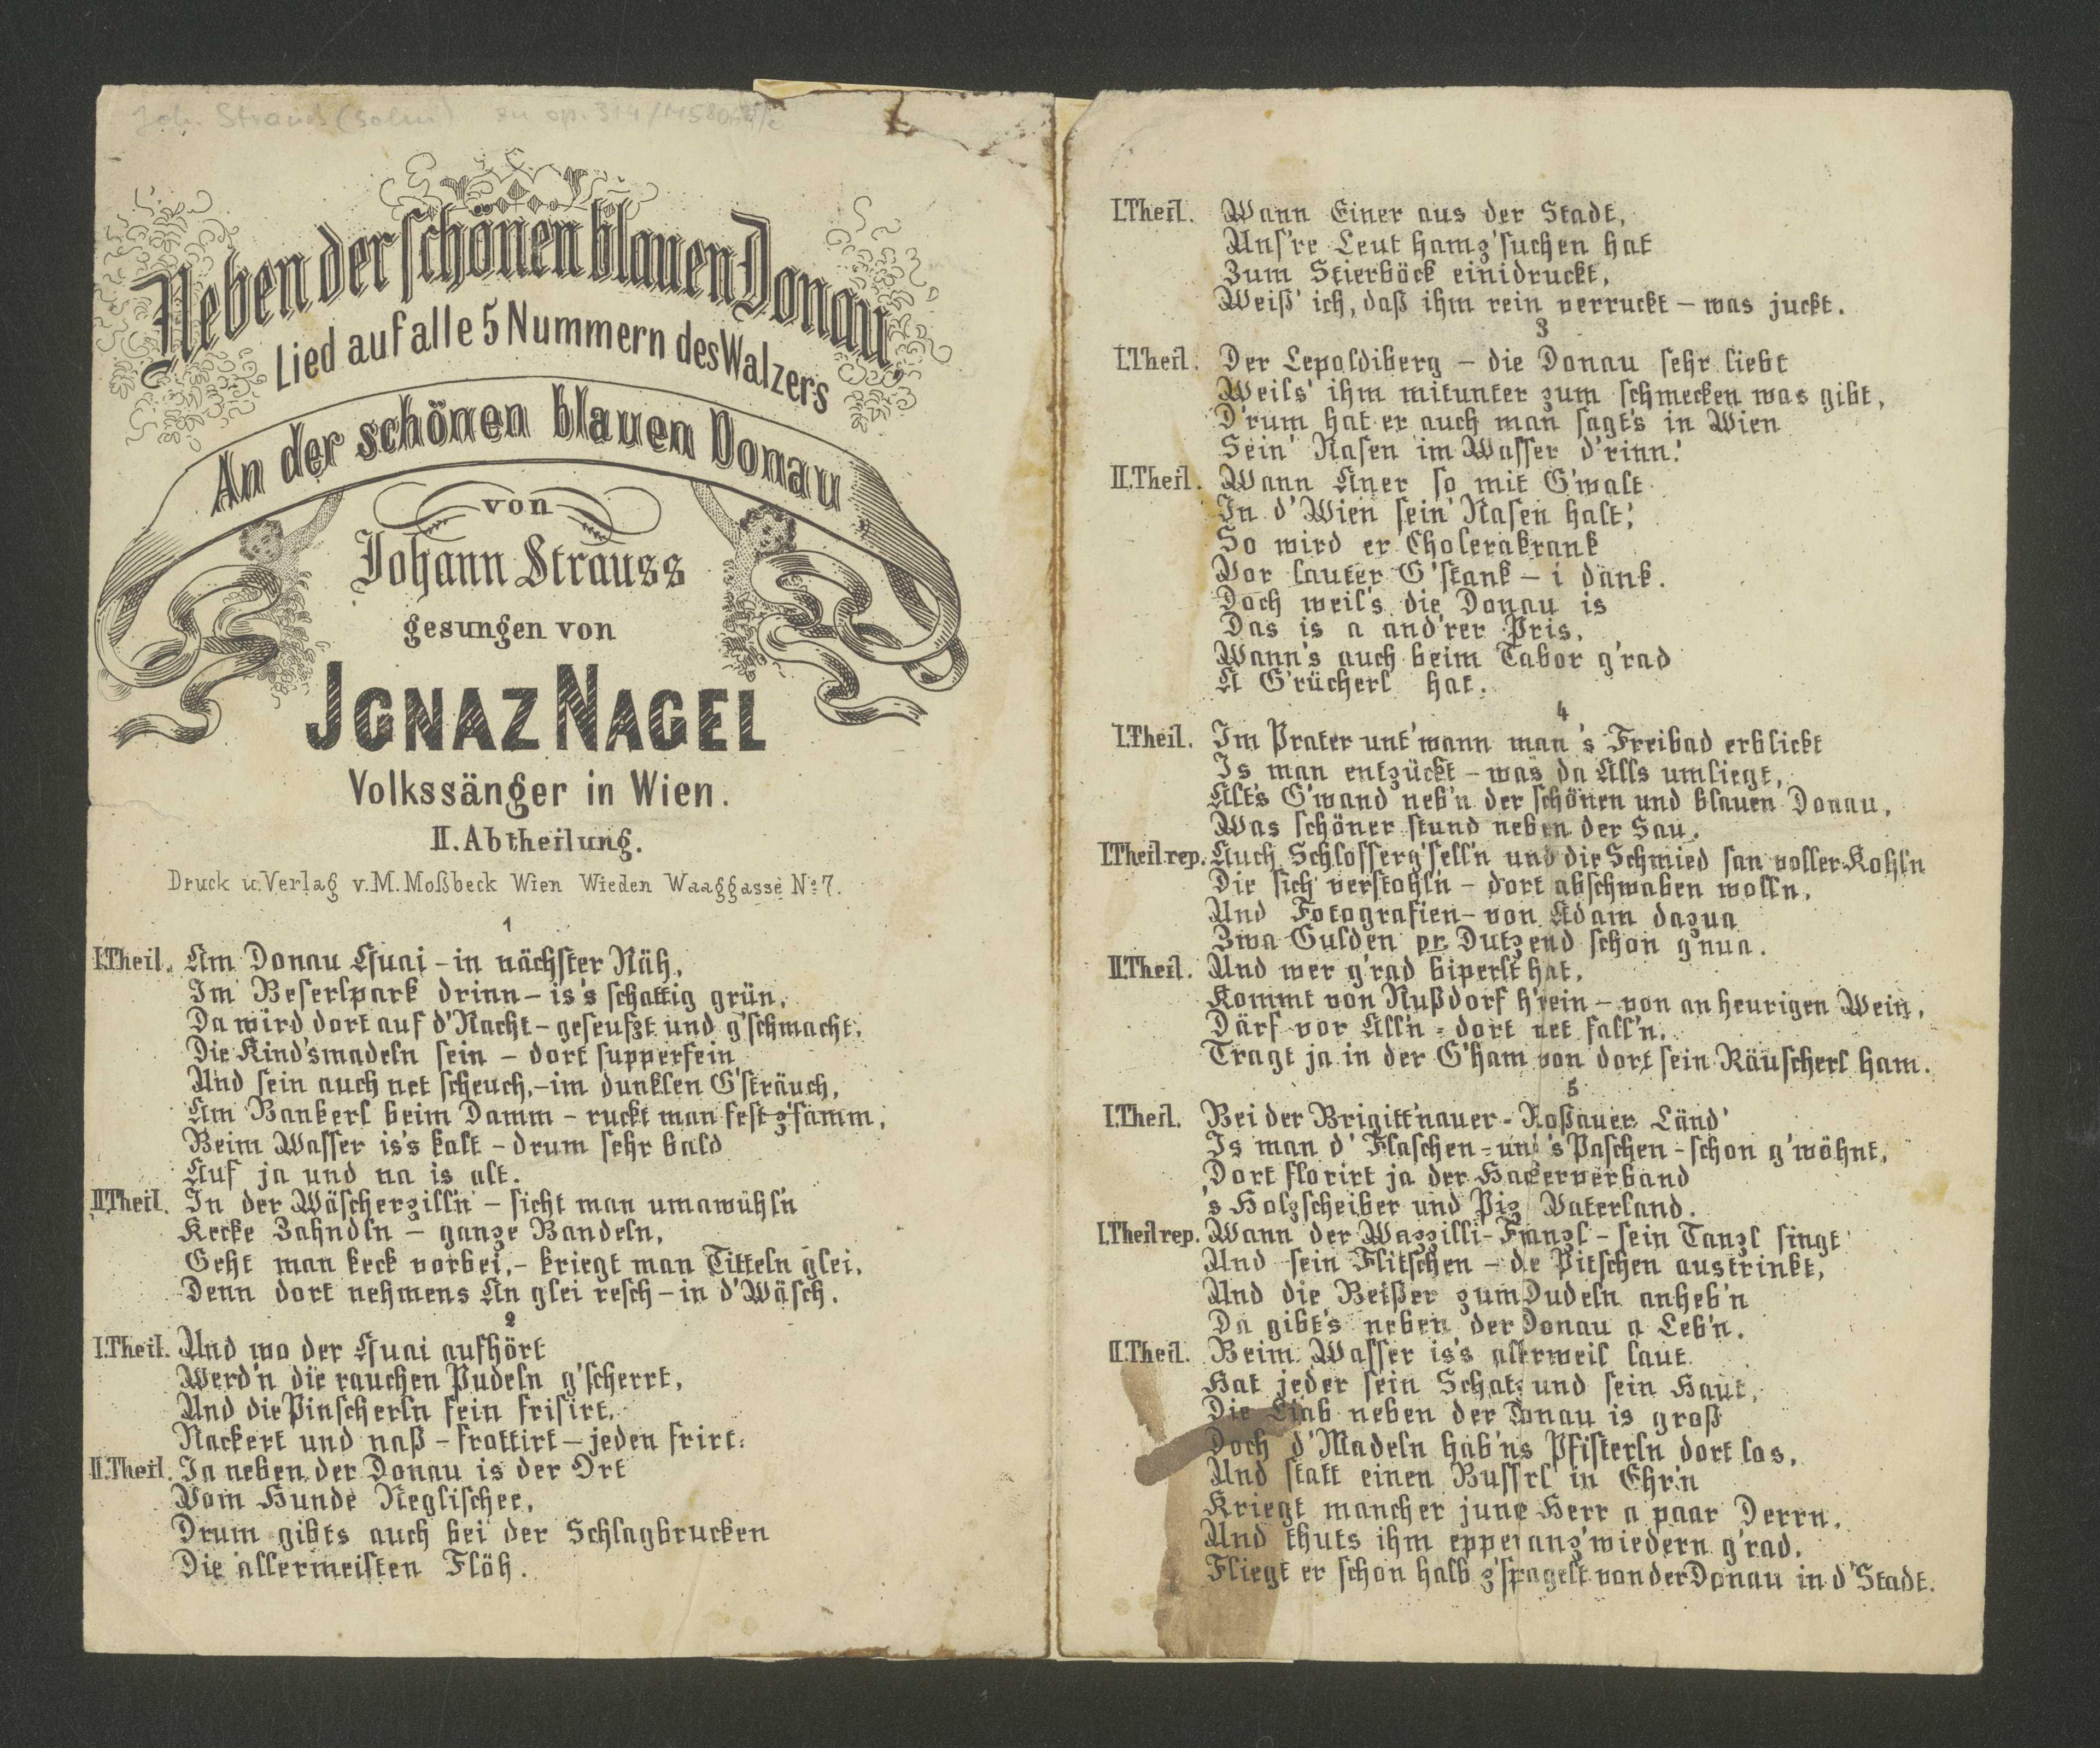 Joh. Strauß (Sohn) zu op. 314 /
Neben der schönen blauen Donau
Lied auf alle 5 Nummern des Walzers
An der schönen blauen Donau
von
Johann Strauss
gesungen von
JGNAZ NAGEL
Volkssänger in Wien.
II. Abtheilung.
Druck u. Verlag v. M. Moßbeck Wien Wieden Waaggasse No. 7.
1
I.Theil. Am Donau Quai – in nächster Näh,
Im Beserlpark drinn – is's schattig grün,
Da wird dort auf d'Nacht – geseufzt und g'schmacht,
Die Kind'smadeln sein – dort supperfein
Und sein auch net scheuch, – im dunklen G'sträuch,
Am Bankerl beim Damm – ruckt man fest z'samm,
Beim Wasser is's kalt – drum sehr bald
Auf ja und na is alt.
II.Theil. In der Wäscherzill'n – sicht man umawühl'n
Kecke Zahndln – ganze Bandeln,
Geht man keck vorbei, – kriegt man Titteln glei,
Denn dort nehmens An glei resch – in d'Wäsch.
2
I.Theil. Und wo der Quai aufhört
Werd'n die rauchen Pudeln g'scherrt,
Und die Pinscherln fein frisirt,
Nackert und naß – frottirt – jeden frirt.
II.Theil. Ja neben der Donau is der Ort
Vom Hunde Neglischee,
Drum gibts auch bei der Schlagbrucken
Die allermeisten Flöh.
I.Theil. Wann Einer aus der Stadt,
Uns're Leut hamz'suchen hat
Zum Stierböck einidruckt,
Weiß' ich, daß ihm rein verruckt – was juckt.
3
I.Theil. Der Lepoldiberg – die Donau sehr liebt
Weils' ihm mitunter zum schmecken was gibt,
D'rum hat er auch man sagt's in Wien
Sein' Nasen im Wasser d'rinn.
II.Theil. Wann Aner so mit G'walt
In d'Wien sein' Nasen halt,
So wird er Cholerakrank
Vor lauter G'stank – i dank.
Doch weil's die Donau is
Das is a and'rer Pris,
Wann's auch beim Tabor g'rad
A G'rücherl hat.
4
I.Theil. Im Prater unt' wann man 's Freibad erblickt
Is man entzückt – was da Alls umliegt,
Alt's G'wand neb'n der schönen und blauen Donau,
Was schöner stund neben der Sau.
I.Theil rep. Auch Schlosserg'sell'n und die Schmied san voller Kohl'n
Die sich verstohl'n – dort abschwaben woll'n,
Und Fotografien – von Adam dazua
Zwa Gulden pr. Dutzend schon g'nua.
II.Theil. Und wer g'rad biperlt hat,
Kommt von Nußdorf h'rein – von an heurigen Wein,
Därf vor All'n – dort net fall'n,
Tragt ja in der G'ham von dort sein Räuscherl ham.
5
I.Theil. Bei der Brigitt'nauer – Roßauer Länd'
Is man d' Flaschen – und 's Paschen – schon g'wöhnt,
Dort florirt ja der Haderverband
's Holzscheiber und Piz Vaterland.
I.Theil rep. Wann der Wazzilli-Franzl – sein Tanzl singt
Und sein Flitschen – die Pitschen austrinkt,
Und die Beißer zum Dudeln anheb'n
Da gibt's neben der Donau a Leb'n.
II.Theil. Beim Wasser is's allerweil laut
Hat jeder sein Schatz und sein Haut,
Die Liab neben der Donau is groß
Doch d'Madeln hab'ns Pfisterln dort los,
Und statt einen Busserl in Ehr'n
Kriegt mancher junge Herr a paar Derrn,
Und thuts ihm anz'wiedern g'rad,
Fliegt er schon halb z'spragelt von der Donau in d'Stadt.